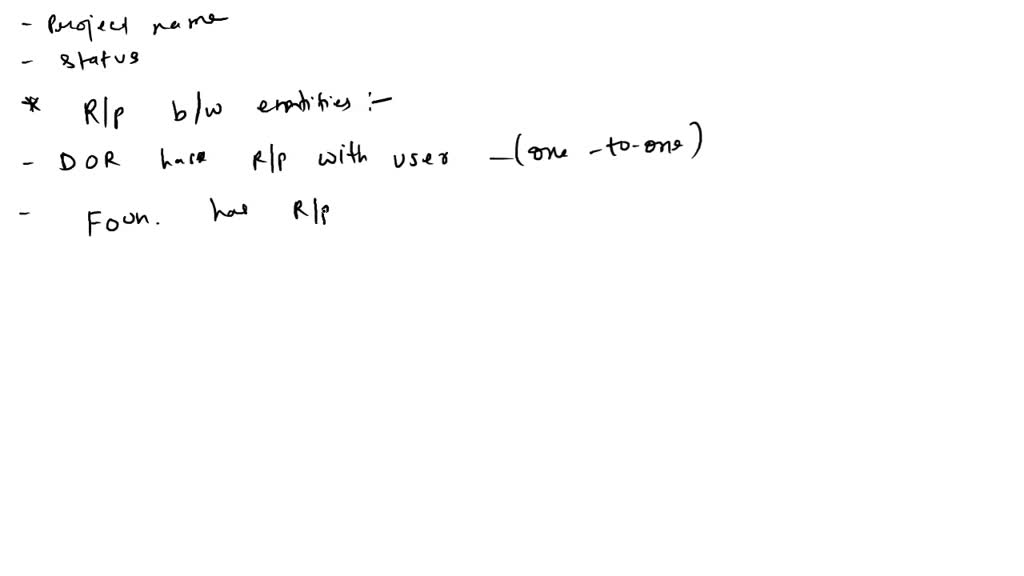 - Project name
- Status
* R/p b/w entities :-
- DOR has R/p with user - (one -to-one)
- Foun. has R/p